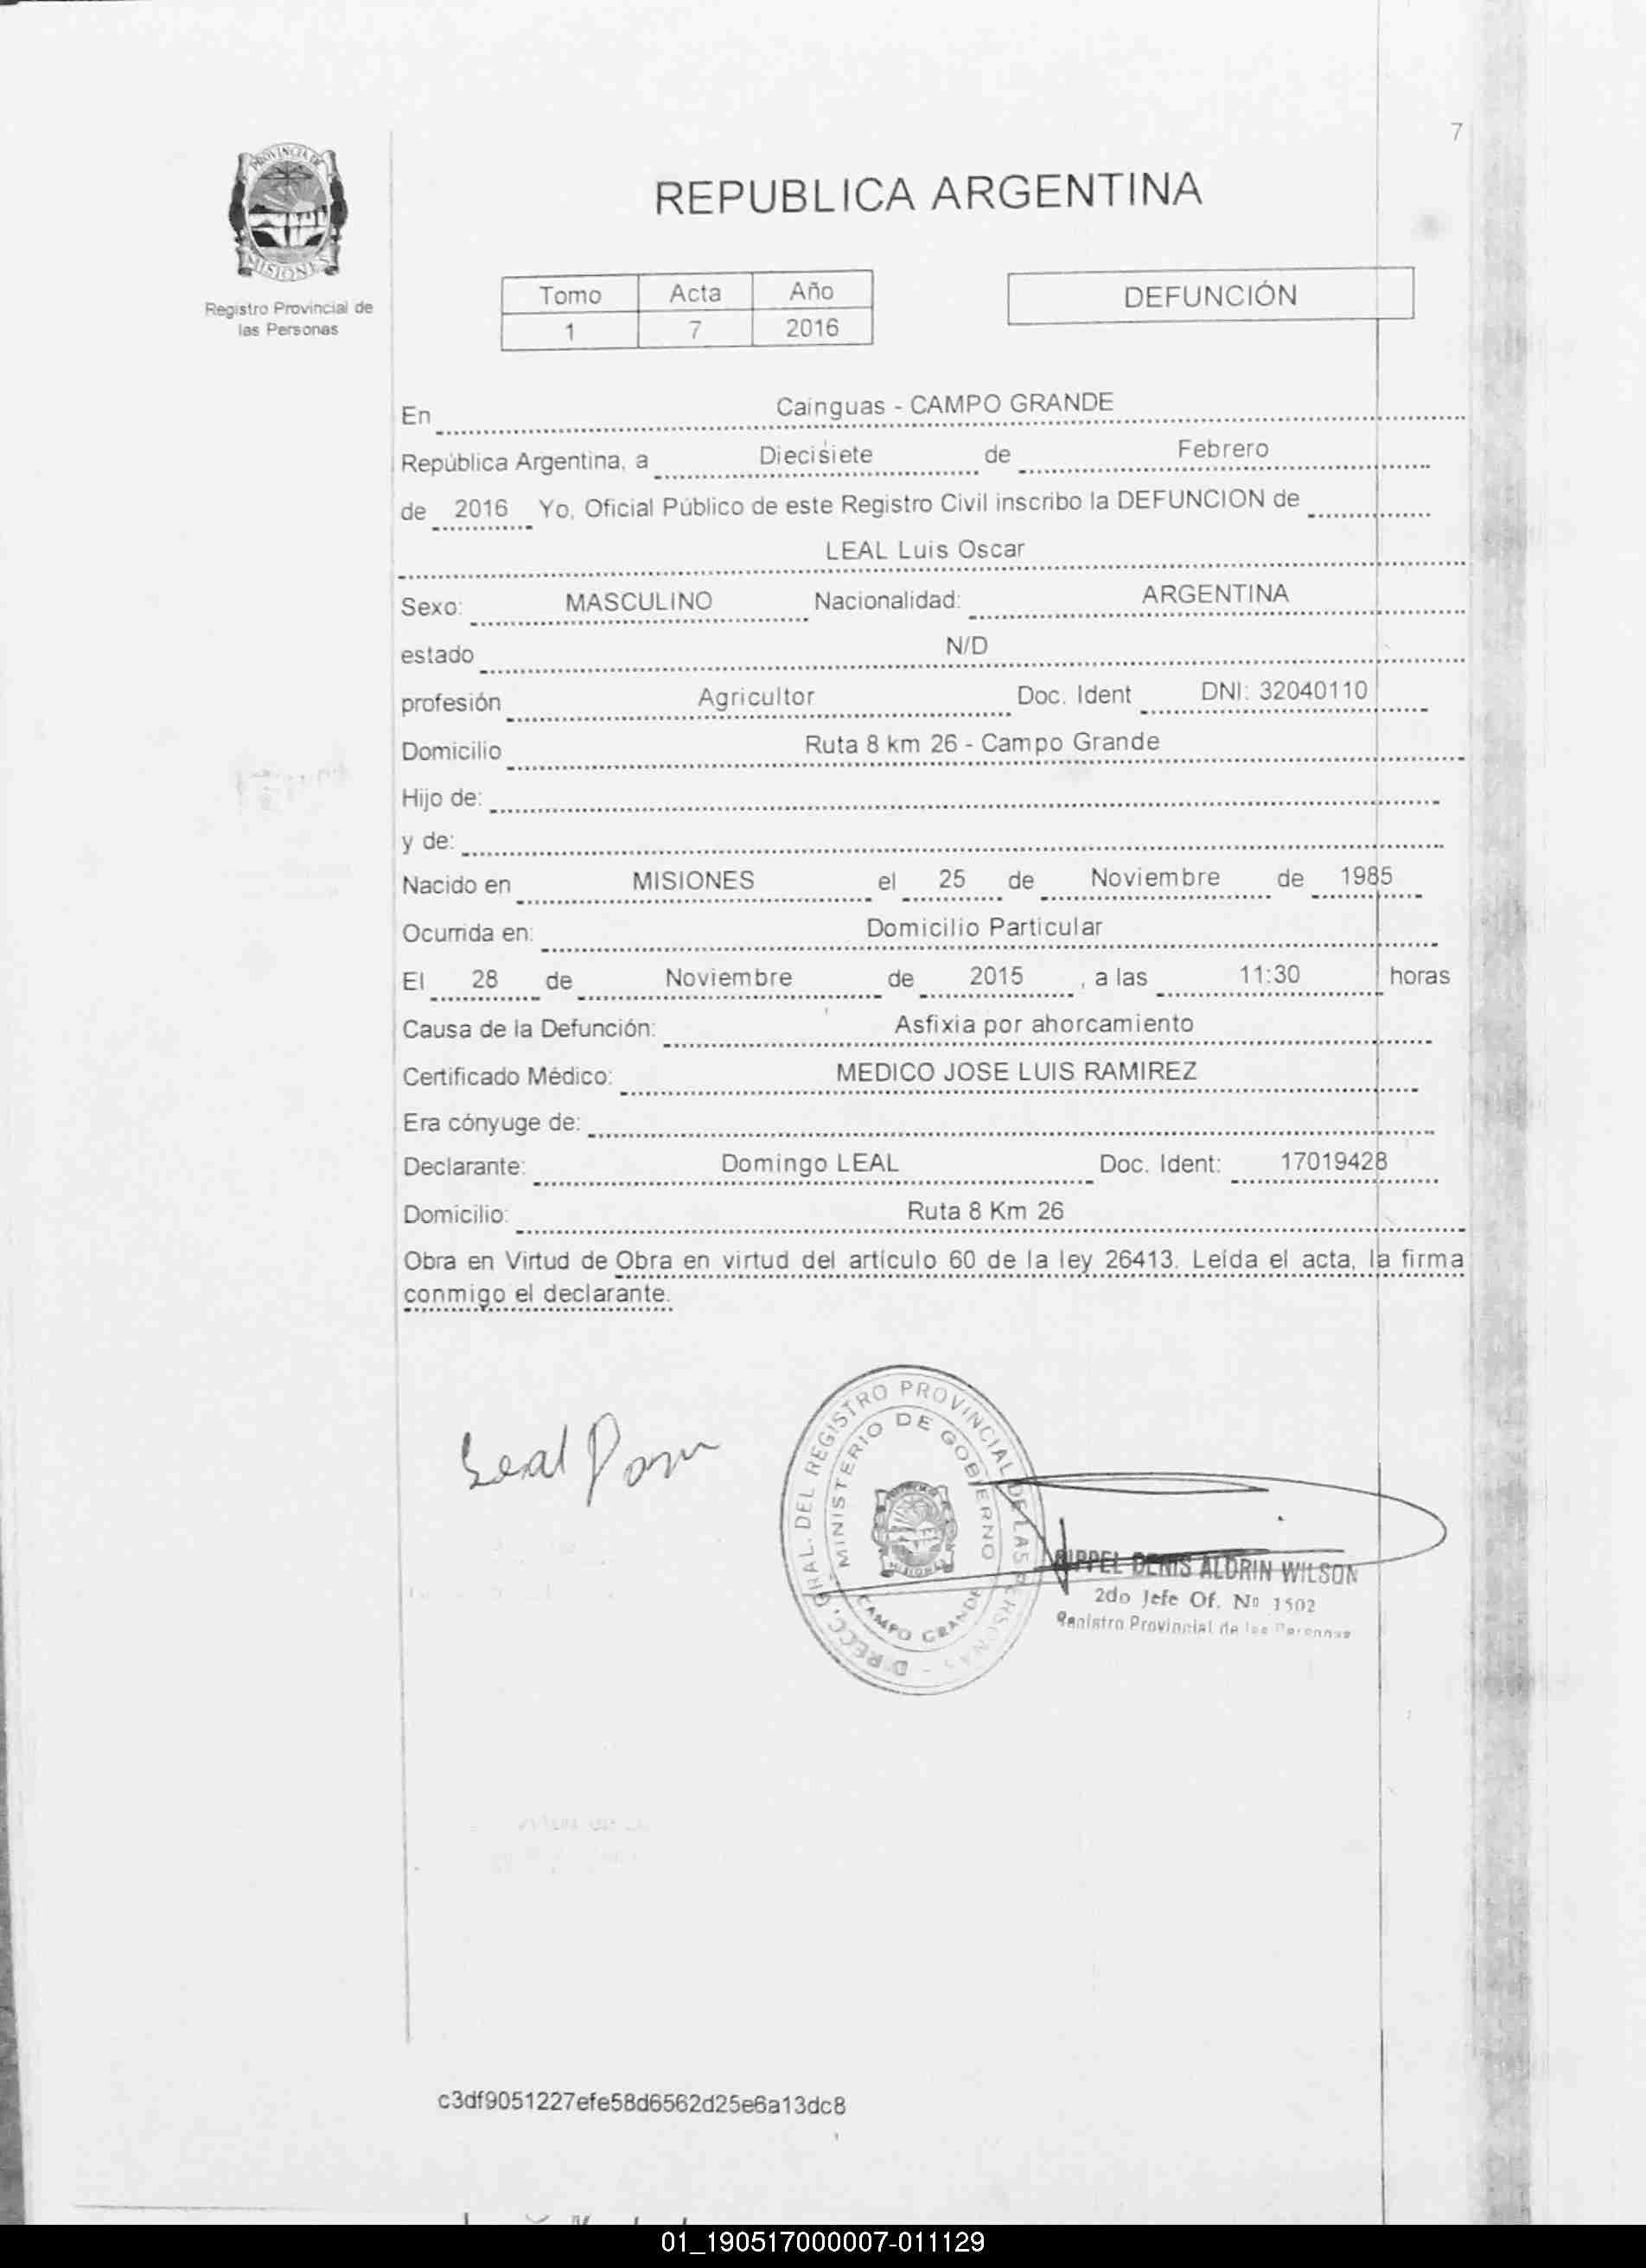 7
PROVINCIA DE
MISIONES
Registro Provincial de
las Personas
REPUBLICA ARGENTINA
Tomo Acta Año
1 7 2016
DEFUNCIÓN
En Cainguas - CAMPO GRANDE
República Argentina, a Diecisiete de Febrero
de 2016 Yo, Oficial Público de este Registro Civil inscribo la DEFUNCION de
LEAL Luis Oscar
Sexo: MASCULINO Nacionalidad: ARGENTINA
estado N/D
profesión Agricultor Doc. Ident DNI: 32040110
Domicilio Ruta 8 km 26 - Campo Grande
Hijo de:
y de:
Nacido en MISIONES el 25 de Noviembre de 1985
Ocurrida en: Domicilio Particular
El 28 de Noviembre de 2015 , a las 11:30 horas
Causa de la Defunción: Asfixia por ahorcamiento
Certificado Médico: MEDICO JOSE LUIS RAMIREZ
Era cónyuge de:
Declarante: Domingo LEAL Doc. Ident: 17019428
Domicilio: Ruta 8 Km 26
Obra en Virtud de Obra en virtud del artículo 60 de la ley 26413. Leída el acta, la firma
conmigo el declarante.
Leal
DIRECC. GRAL. DEL REGISTRO PROVINCIAL DE LAS PERSONAS -
MINISTERIO DE GOBIERNO
CAMPO GRANDE
DENIS ALDRIN WILSON
2do Jefe Of. Nº 1502
Registro Provincial de las Personas
c3df9051227efe58d6562d25e6a13dc8
01_190517000007-011129